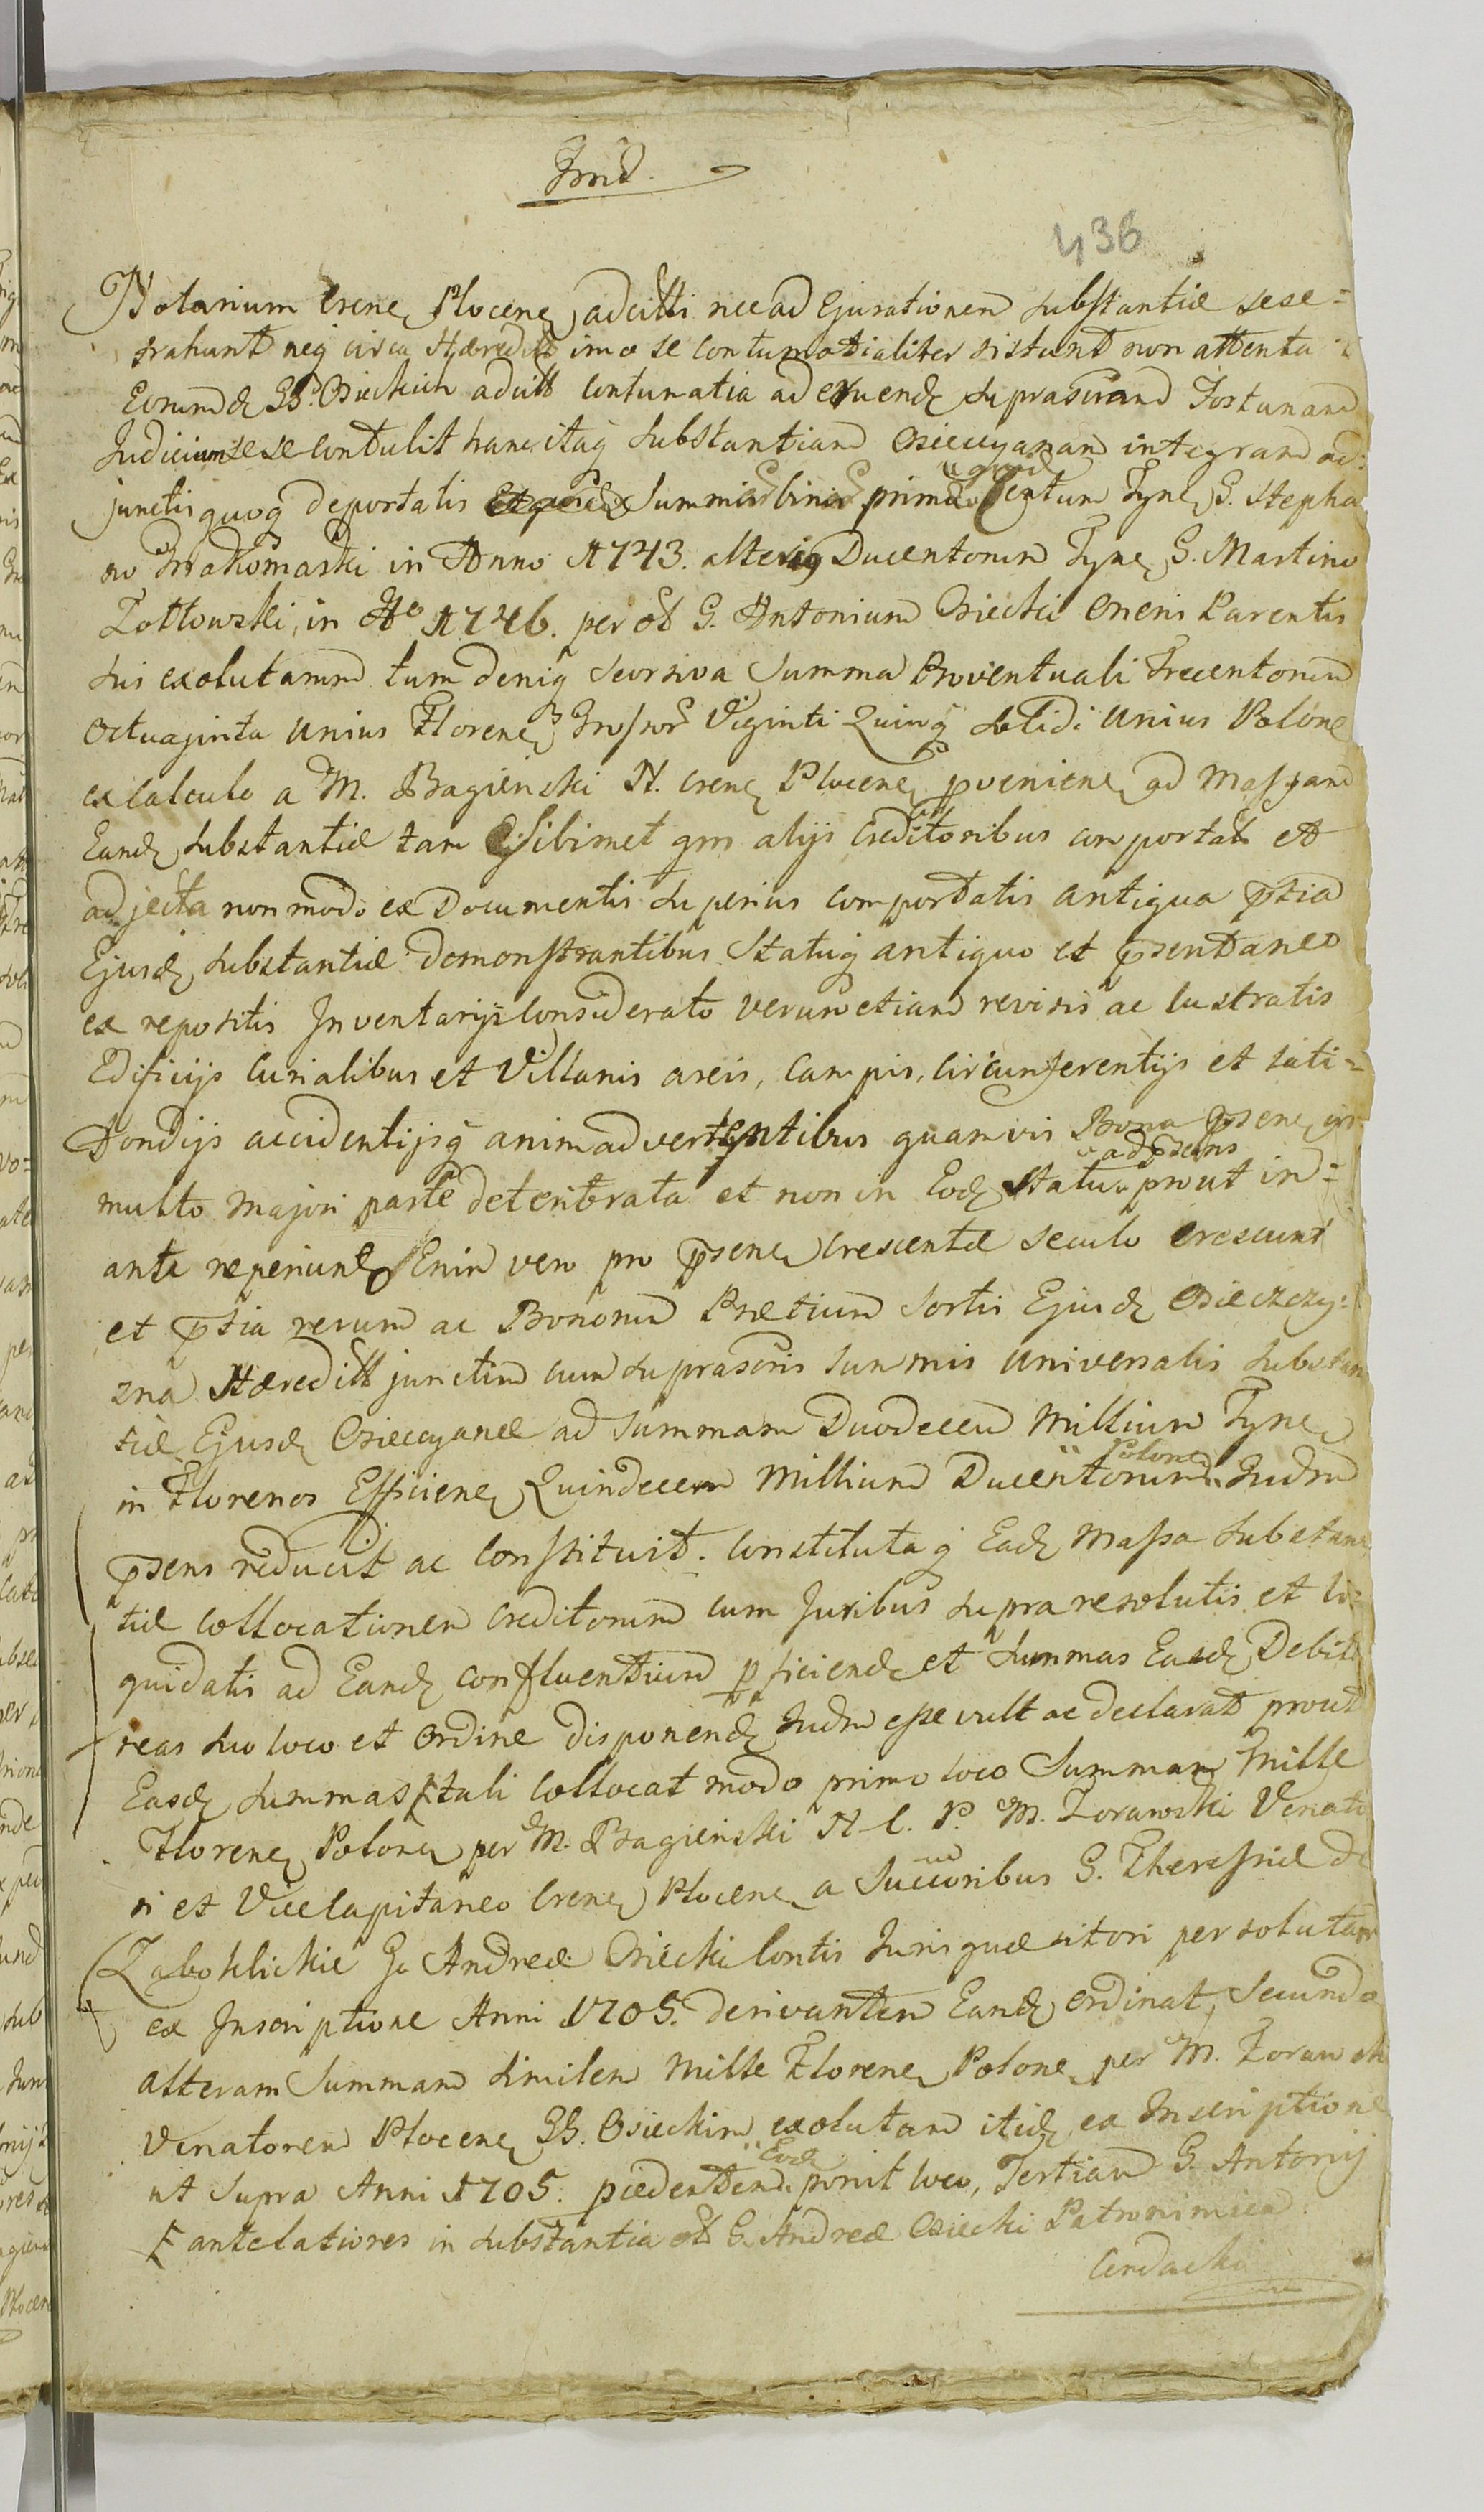 436
Notarium Crene Plocene adcitti nec ad Ejurationem substantiæ sese=
trahunt neq circa Hæreditt imo se contumatialiter sistunt non attenta
Eorumd GG. Osieckich adcitt contumatia ad eruend suprascram Fortunam
Judicium sese contulit hanc itaq substantiam Osieccyanam integram ad:
junctis quoq deportatis Summis binis prima Centum Tyne G. Stepha
no in Anno 1743. alteriq Ducentorum Tyne G. Martino
Zottowski, in Ao 1746. per ol G. Antonium Osiecki oneris Parentis
sui exolutarum tum deniq seorsiva Summa Proventuali Trecentorum
Octuaginta Unius Florene Grossor Viginti Quinq Solidi Unius Polone
ex calculo a M. Bagienski N. Crene Plocene pveniene ad Massam
Eand substantiæ tam sibimet qm alijs Creditoribus comportat et
adjecta non modo ex Documentis superius comportatis antiqua ptia
Ejusd substantiæ demonstrantibus Statuq antiquo et psentaneo
ex repositis Inventarijs Considerato verum etiam revisis ac lustratis
Edificijs Curialibus et Villanis areis, Campis, circumferentijs et lati=
fondijs accidentijsq animadvertentibus quamvis Bona psene in
ad psens
multo majori parte deteriorata et non in Eod statu prout in=
ante reperiunt Enim vero pro psene crescente seculo crescunt
et ptia rerum ac Bonorum Prætium Sortis Ejusd Osieczczy:
zna Hæreditt junctim cum suprascris summis universalis substan
tiæ Ejusd Osieccyanæ ad summam Duodecem Millium Tyne
Polone
in Florenos Efficiene Quindecem Millium Ducentorum Judm
psens reducit ac Constituit. Constitutaq Ead Massa substan
tiæ collocationem Creditorum cum Juribus supra resolutis et li=
quidatis ad Eand confluentium pficiend et summas Easd Debito
reas suo loco et ordine disponend Judm esse vult ac declarat prout
Easd summas tali collocat modo primo loco Summam Mille
Florene Polone per M. Bagienski N. C. P. M. Zorawski Venato
ri et Vicecapitaneo Crene Plocene a Succoribus G. Theressiæ de
Zaboklickie G. Andreæ Osiecki Contis Juris quæsitori persolutam
ex Inscriptione Anni 1705. derivantem Eand ordinat, Secundo
alteram Summam similem Mille Florene Polone per M. Zorawski
Venatorem Plocene GG. Osieckim exolutam itid ex Inscriptione
Eod
ut supra Anni 1705. pcedentem ponit loco, Tertiam G. Antonij
antelatiores in substantia ol G. Andreæ Osiecki Patronimica